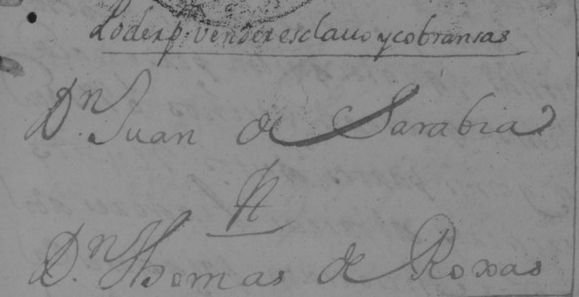 Poder p. vender esclauo y cobransas
Dn Juan de Sarabia
A
Dn Thomas de Roxas